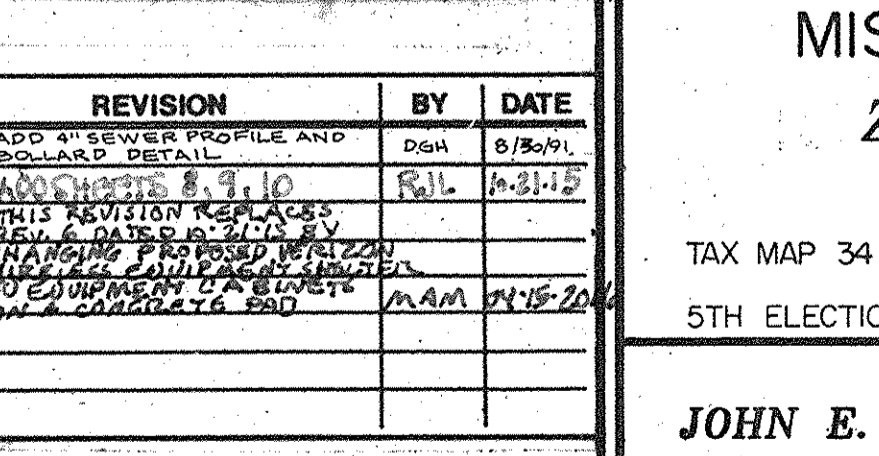 REVISION BY DATE
ADD 4" SEWER PROFILE AND
BOLLARD DETAIL DGH 8/30/91
ADD SHEETS 8, 9, 10 RJL 10.21.15
THIS REVISION REPLACES
REV. 6 DATED 10.21.15 BY
CHANGING PROPOSED VERIZON
WIRELESS EQUIPMENT SHELTER
TO EQUIPMENT CABINETS
ON A CONCRETE PAD MAM 04-15-2016
MIS
TAX MAP 34
5TH ELECTIO
JOHN E.